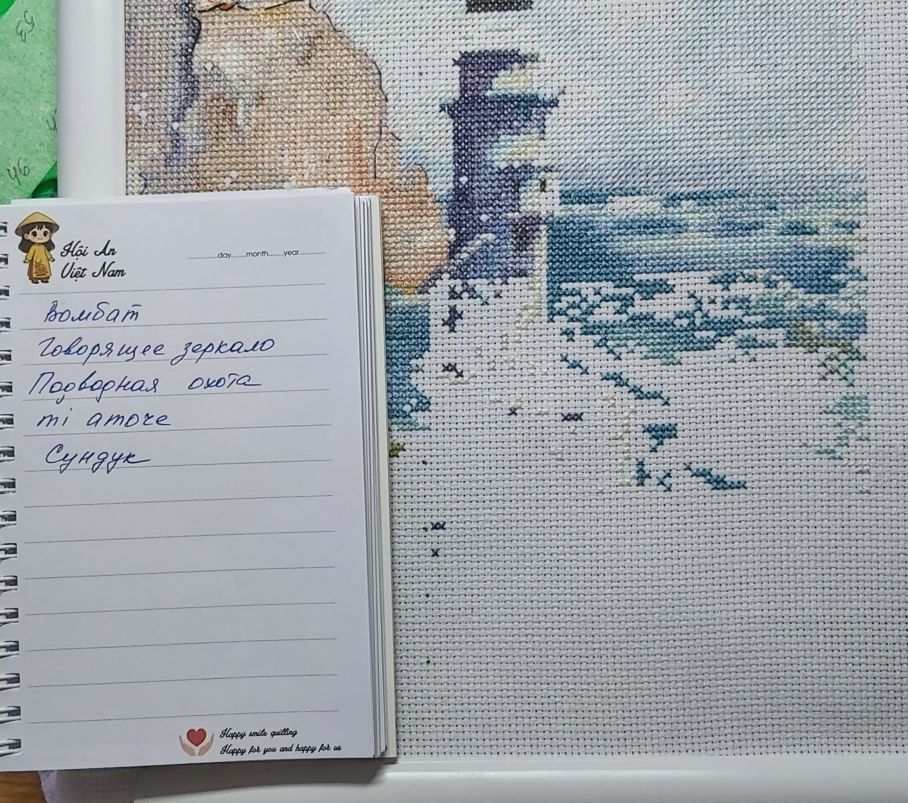 Hội An
Việt Nam
day month year
Вомбат
Говорящее зеркало
Подводная охота
ti amore
Сундук
Happy smile quilling
Happy for you and happy for us
46